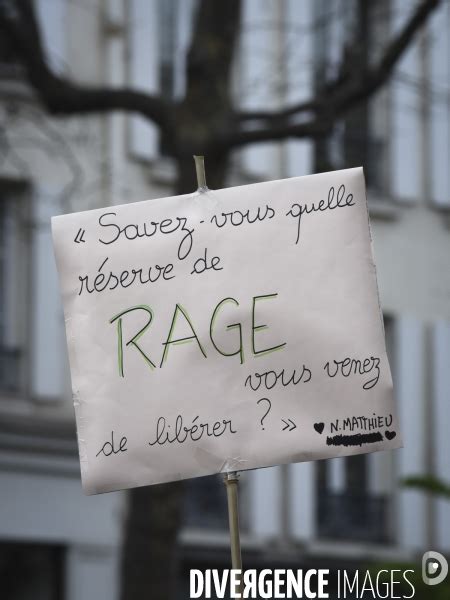 « Savez-vous quelle
réserve de
RAGE
vous venez
de libérer ? »
♥ N. MATTHIEU ♥
DIVERGENCE IMAGES
D